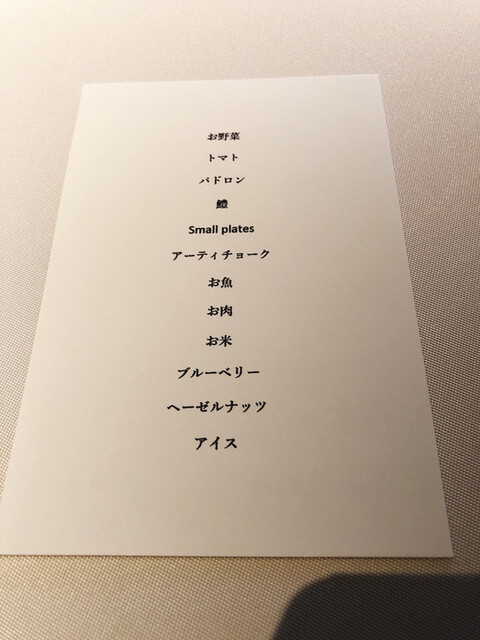 お野菜
トマト
パドロン
鱧
Small plates
アーティチョーク
お魚
お肉
お米
ブルーベリー
ヘーゼルナッツ
アイス